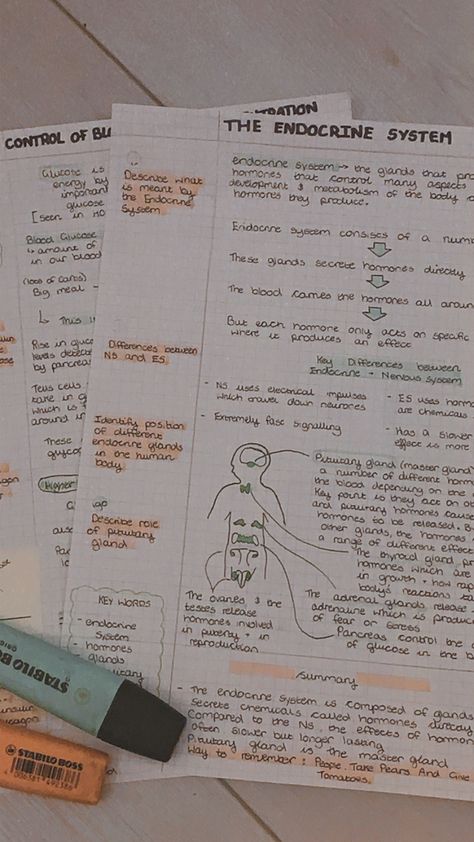 CONTROL OF BL
TRATION
Glucose is
energy by
important
glucose
[seen in HO
Blood Glucose
↳ amount of
in our blood
(lots of carbs)
Big meal →
↳ This i
Rise in gluc
levels detec
by pancrea
Tells cells
take in g
which is
around in
These
glycog
Higher
THE ENDOCRINE SYSTEM
Describe what
is meant by
the Endocrine
System
endocrine system → the glands that pro
hormones that control many aspects
development & metabolism of the body
hormones they produce.
Endocrine system consists of a num
These glands secrete hormones directly
The blood carries the hormones all arou
But each hormone only acts on specific
where it produces an effect
Differences between
NS and ES.
Key Differences between
Endocrine + Nervous System
- NS uses electrical impulses
which travel down neurones
- Extremely fast signalling
- ES uses horm
are chemicals
- Has a slower
effect is more
Identify position
of different
endocrine glands
in the human
body.
Pituitary gland (master gland
a number of different horm
the blood depending on the
Key point is they act on ot
and pituitary hormones cause
hormones to be released. B
other glands, the hormones
a range of different effec
The thyroid gland pr
hormones which are
in growth + how rap
body's reactions ta
The adrenal glands release
adrenaline which is produc
of fear or stress
Pancreas control the
of glucose in the b
Describe role
of pituitary
gland
The ovaries & the
testes release
hormones involved
in puberty + in
reproduction
KEY WORDS
- endocrine
System
- hormones
- glands
Summary
- The endocrine system is composed of glands
secrete chemicals called hormones directly
- Compared to the NS, the effects of hormon
often slower but longer lasting
- Pituitary gland is the master gland
Way to remember: People Take Pears And Give
Tomatoes.
STABILO BO
STABILO BOSS